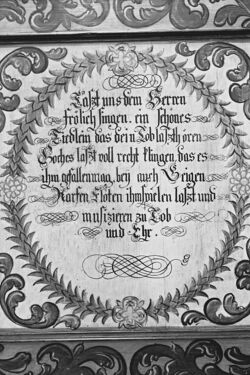 Laßt uns dem Herren
frölich singen, ein schönes
Liedlein das dein Lob laßth ören
Goches laßt voll recht klingen, das es
ihm gfallen mag, bey auch Geigen
Harfen Floten ihm spielen laßt und
musizieren zu Lob
und Ehr.